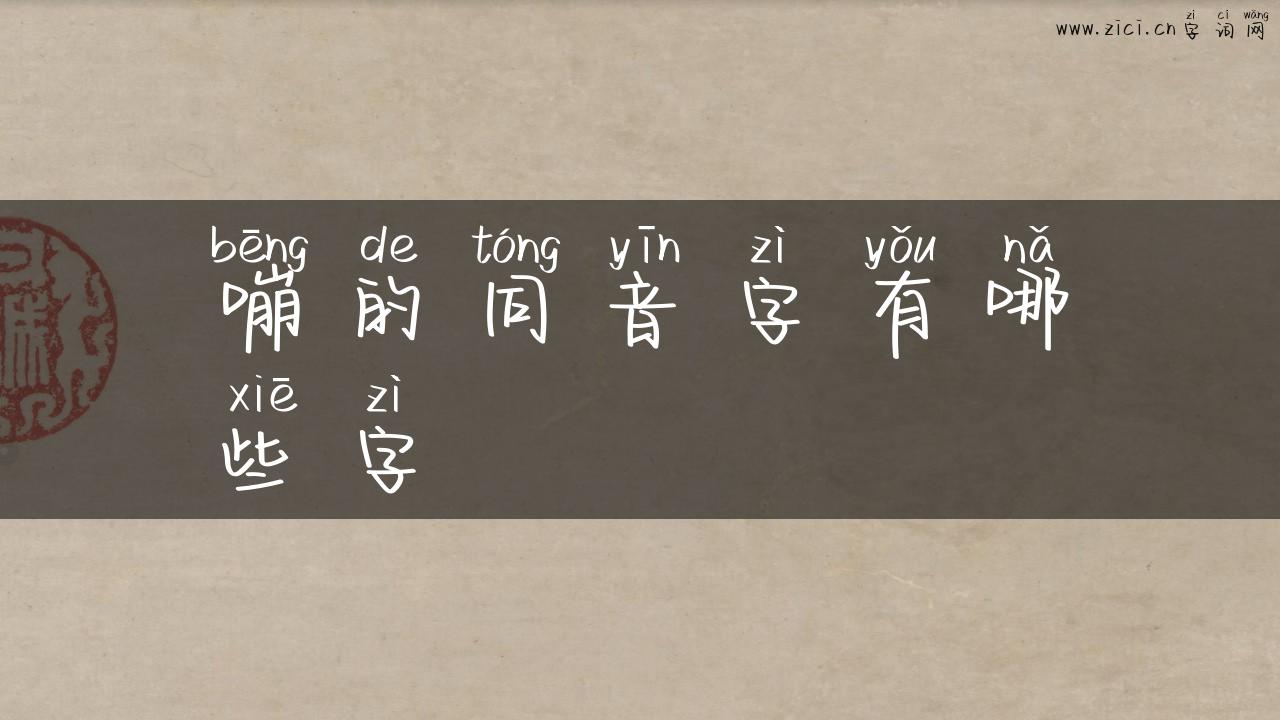 zì cí wǎng
www.zici.cn字词网
bēng de tóng yīn zì yǒu nǎ
嘣的同音字有哪
xiē zì
些字